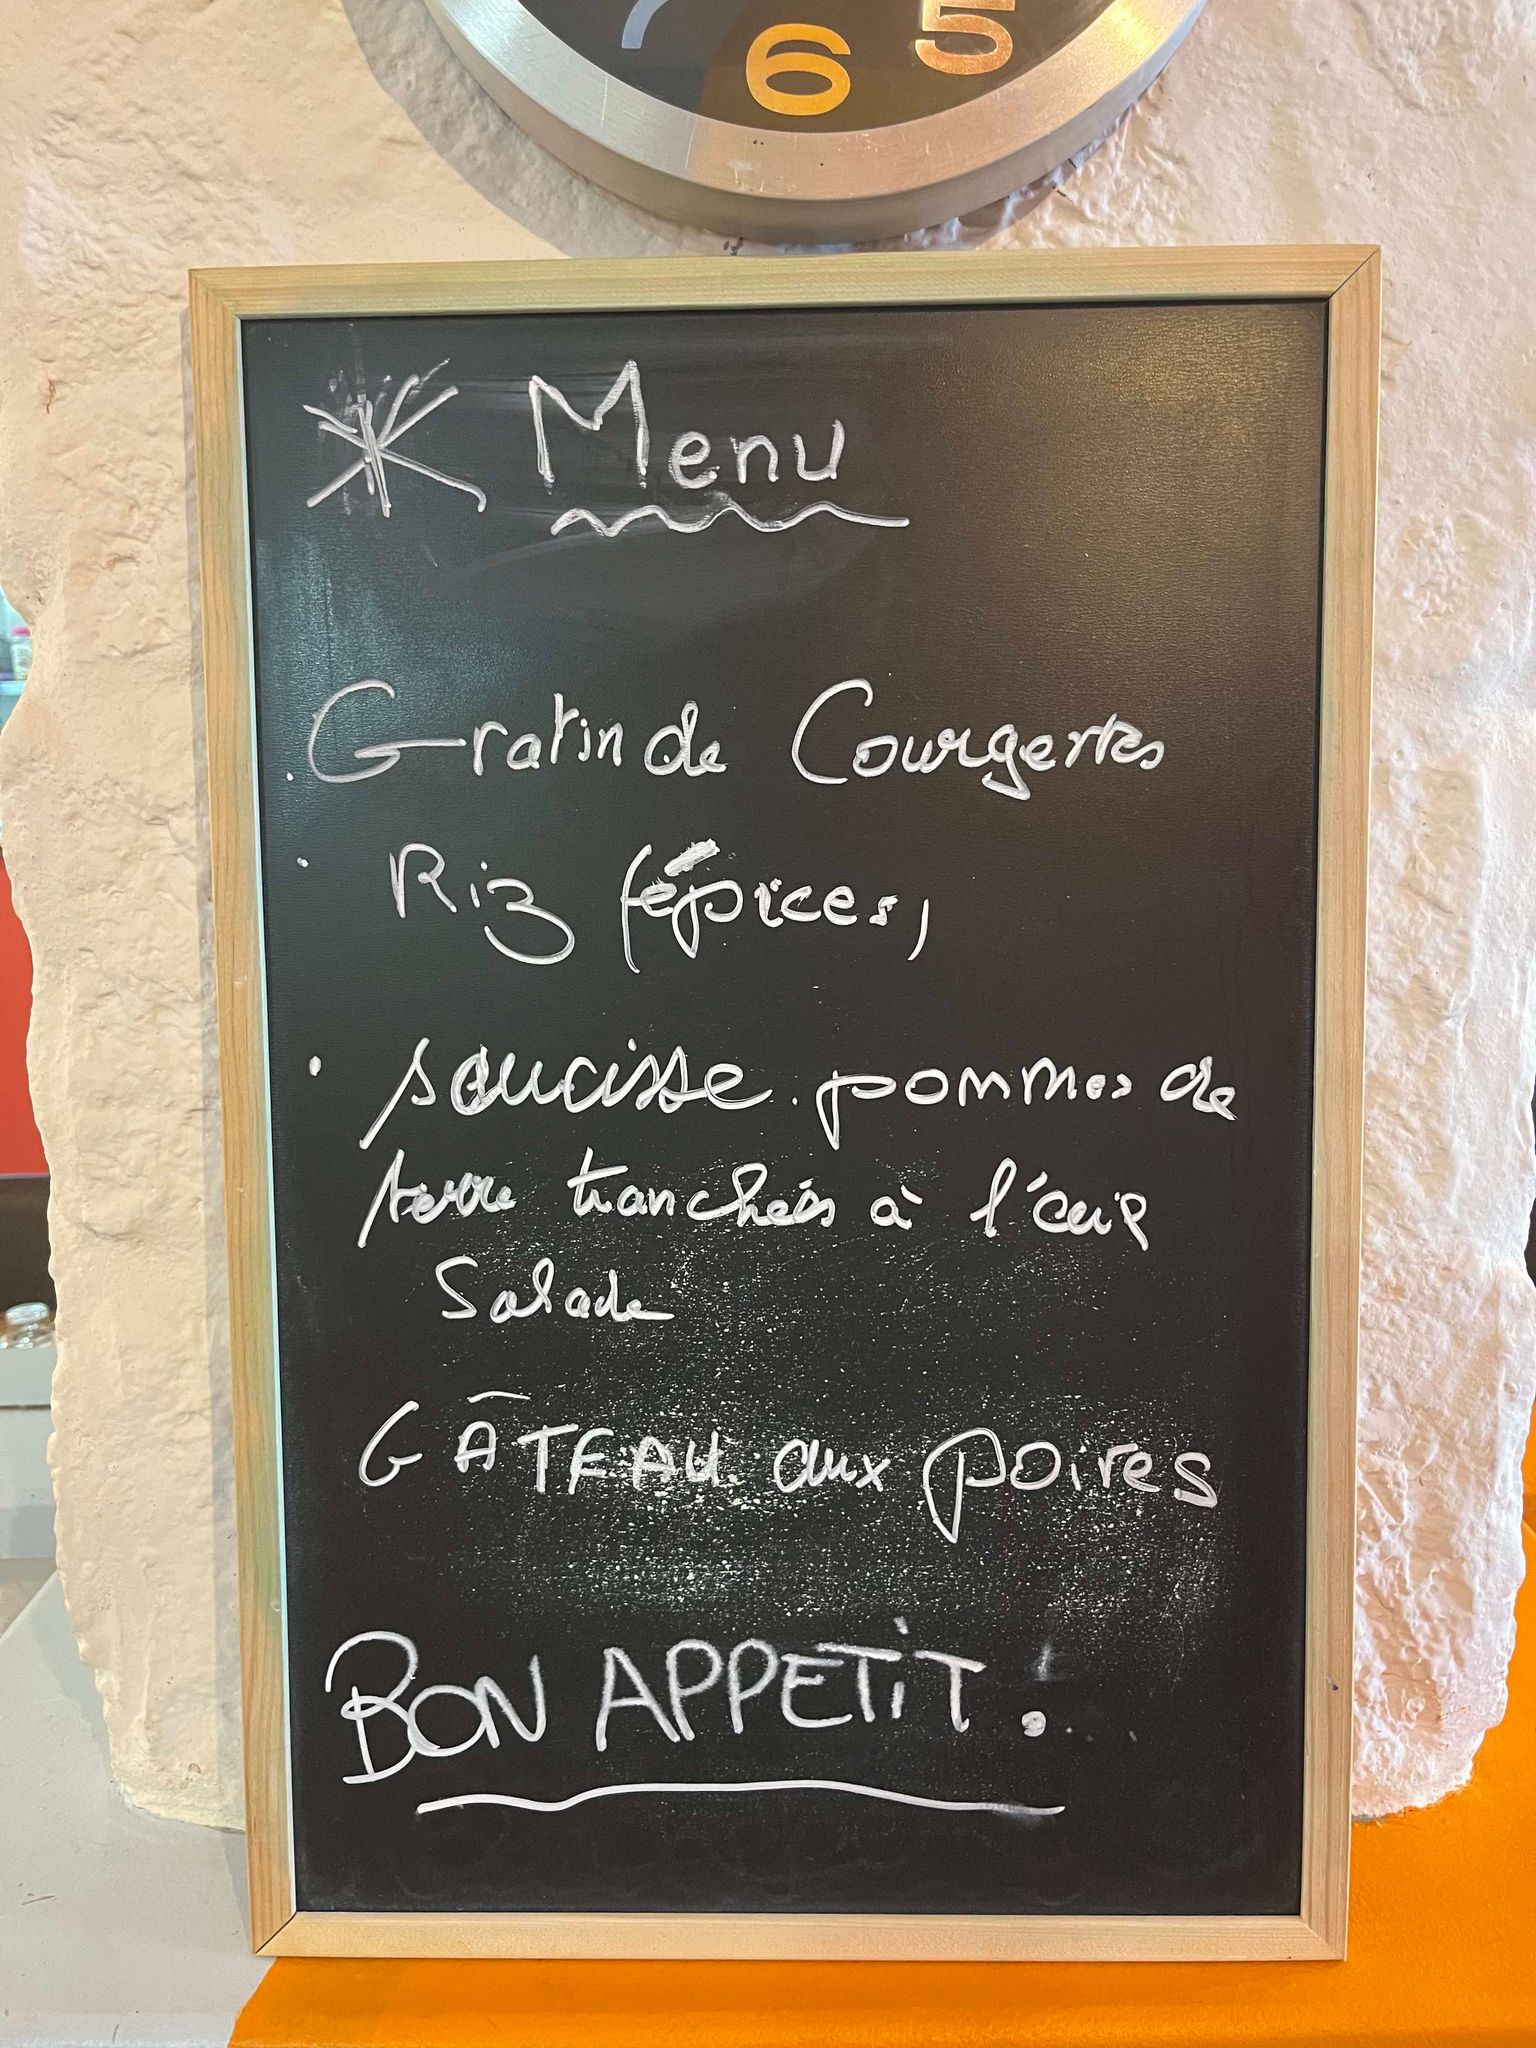 6 5
Menu
Gratin de Courgettes
Riz (épices)
saucisse. pommes de
terre tranchées à l'ail
Salade
GÂTEAU aux poires
BON APPETIT !